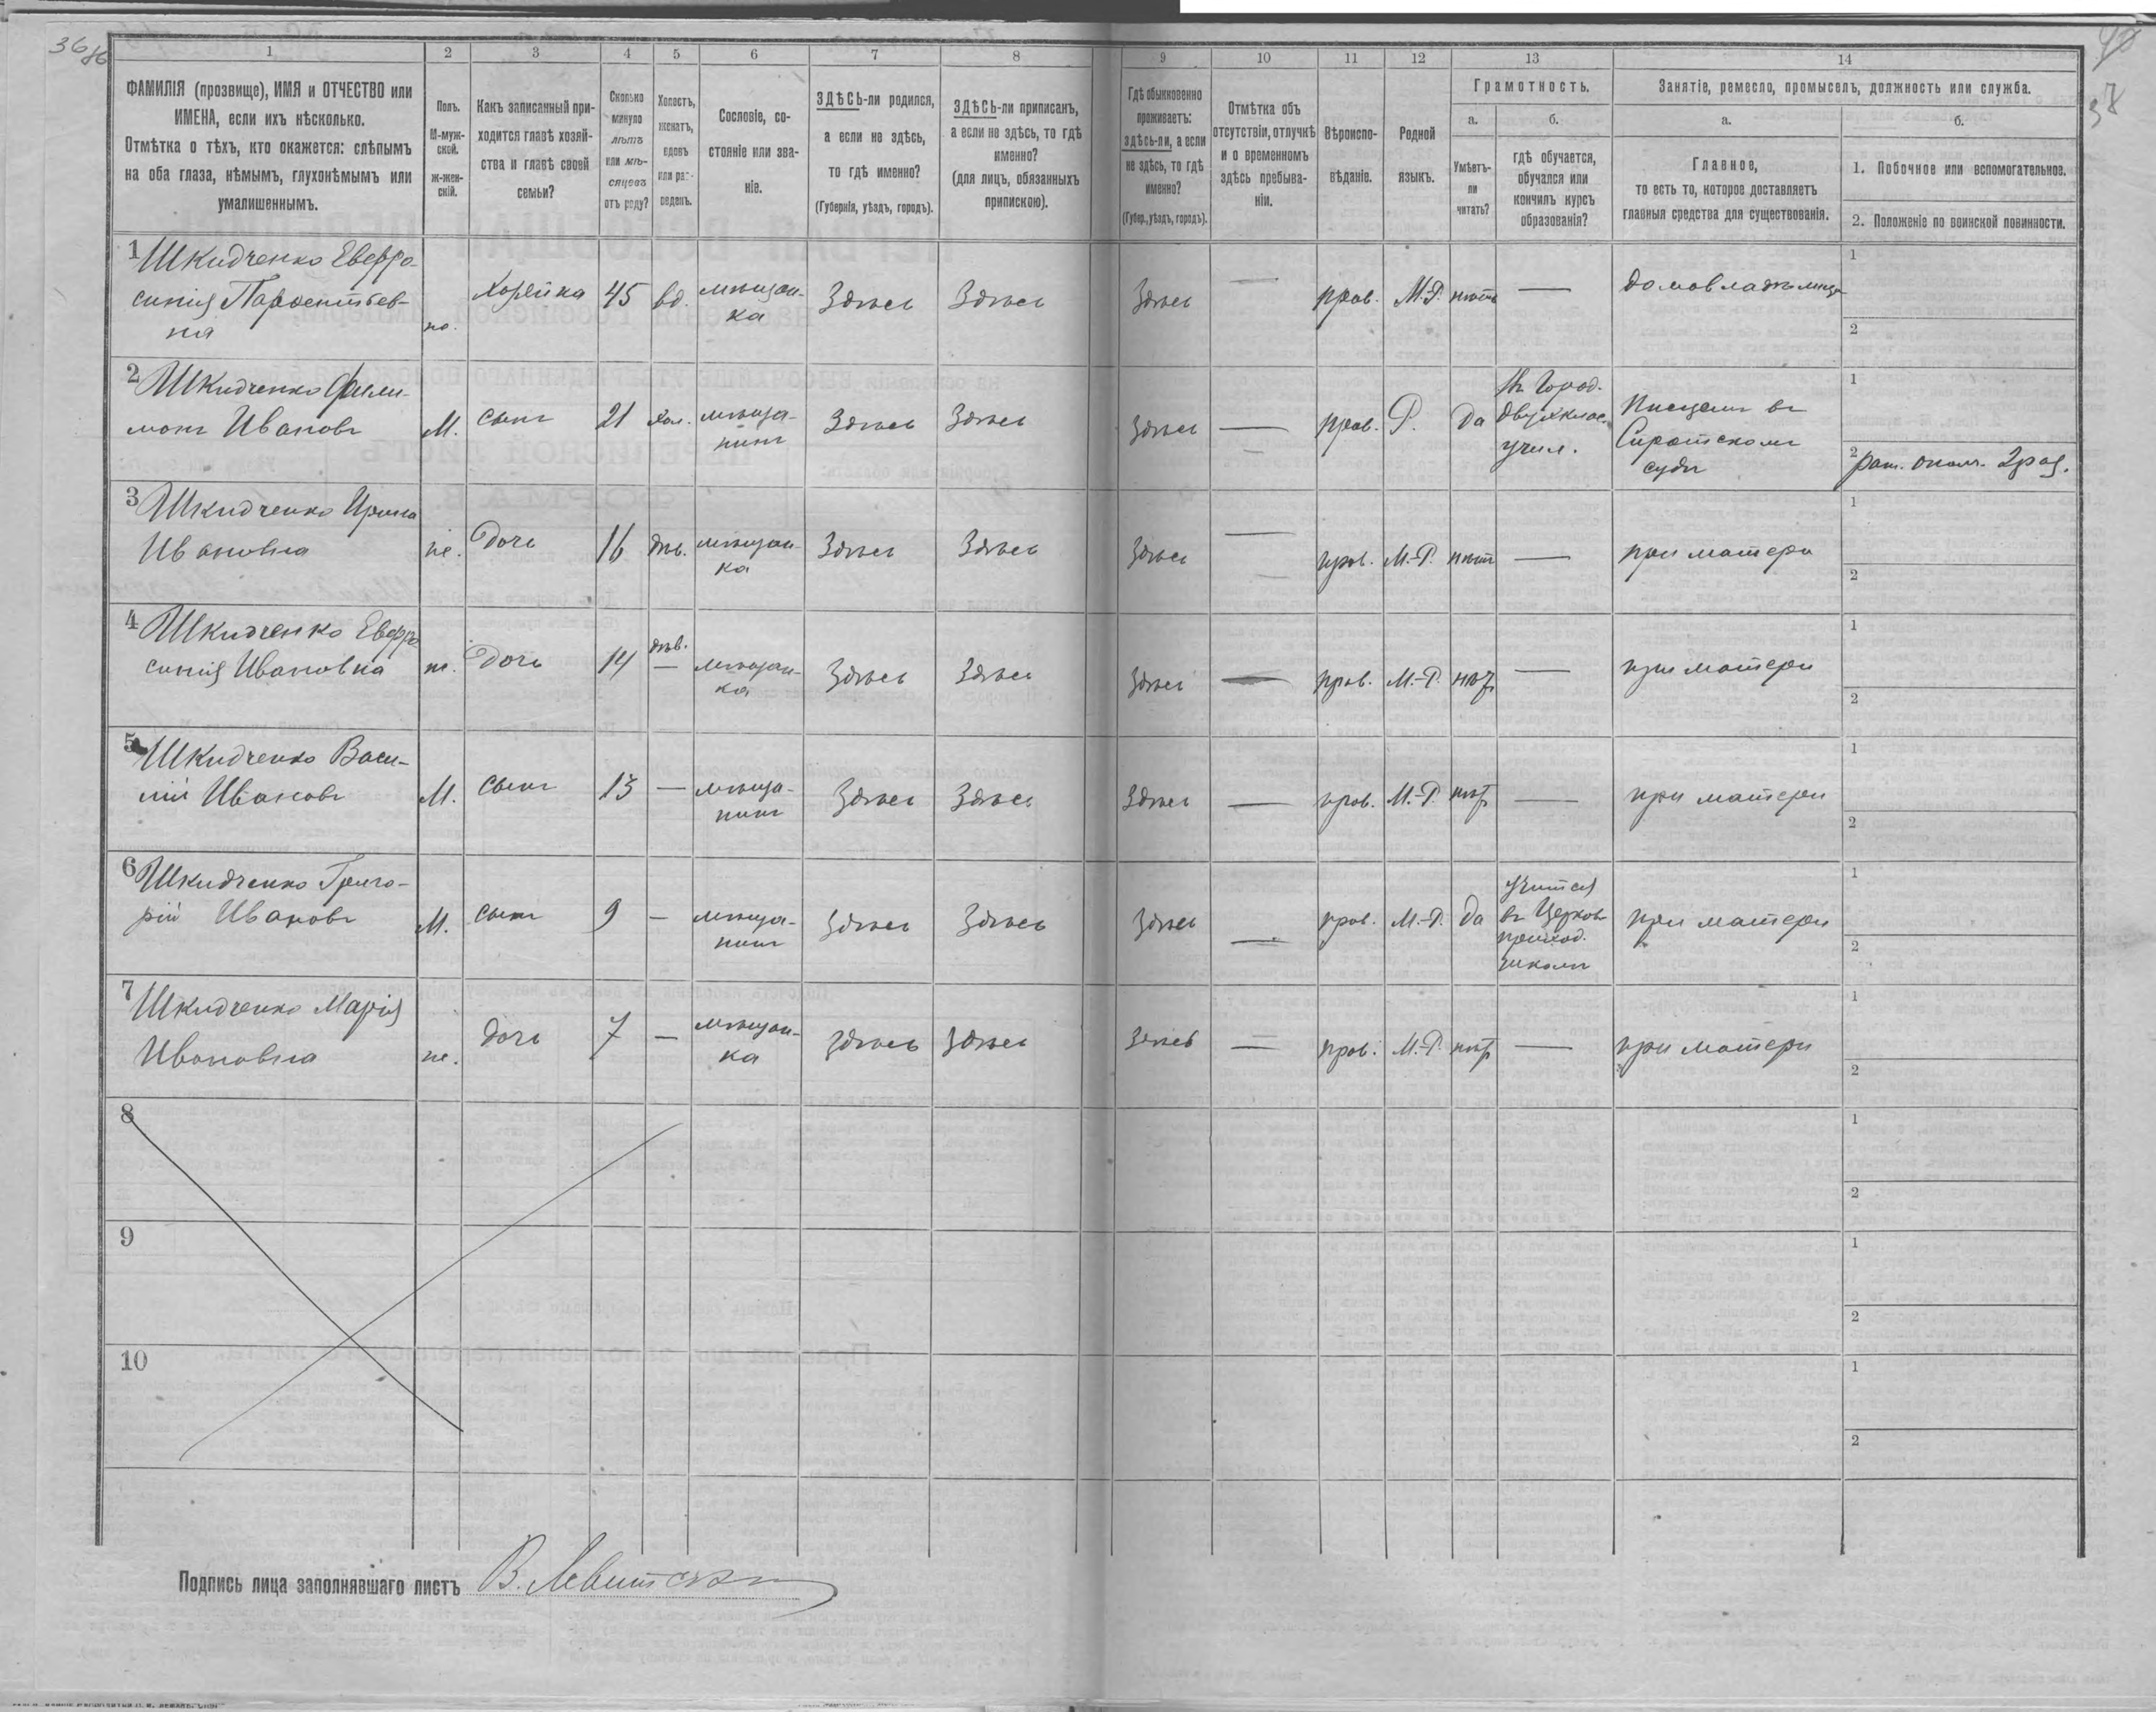 36
1 2 3 4 5 6 7 8 9 10 11 12 13 14
ФАМИЛІЯ (прозвище), ИМЯ и ОТЧЕСТВО или
ИМЕНА, если ихъ нѣсколько.
Отмѣтка о тѣхъ, кто окажется: слѣпымъ
на оба глаза, нѣмымъ, глухонѣмымъ или
умалишеннымъ.
Полъ.
М-муж-
ской.
Ж-жен-
скій.
Какъ записанный при-
ходится главѣ хозяй-
ства и главѣ своей
семьи?
Сколько
минуло
лѣтъ
или мѣ-
сяцевъ
отъ роду?
Холостъ,
женатъ,
вдовъ
или раз-
веденъ.
Сословіе, со-
стояніе или зва-
ніе.
ЗДѢСЬ-ли родился,
а если не здѣсь,
то гдѣ именно?
(Губернія, уѣздъ, городъ).
ЗДѢСЬ-ли приписанъ,
а если не здѣсь, то гдѣ
именно?
(для лицъ, обязанныхъ
припискою).
Гдѣ обыкновенно
проживаетъ:
здѣсь-ли, а если
не здѣсь, то гдѣ
именно?
(Губер., уѣздъ, городъ).
Отмѣтка объ
отсутствіи, отлучкѣ
и о временномъ
здѣсь пребыва-
ніи.
Вѣроиспо-
вѣданіе.
Родной
языкъ.
Грамотность.
а.
Умѣетъ-
ли
читать?
б.
гдѣ обучается,
обучался или
кончилъ курсъ
образованія?
Занятіе, ремесло, промыселъ, должность или служба.
а.
Главное,
то есть то, которое доставляетъ
главныя средства для существованія.
б.
1. Побочное или вспомогательное.
2. Положеніе по воинской повинности.
1 Шкидченко Евфро-
синія Парфентьев-
на
ж. Хозяйка 45 вд. мѣщан-
ка
Здѣсь Здѣсь Здѣсь — прав. М.-Р. нѣтъ — домовладѣлица
1
2
2 Шкидченко Фили-
монъ Ивановъ М. сынъ 21 хол. мѣща-
нинъ
Здѣсь Здѣсь Здѣсь — прав. Р. да
въ Город.
двухклас.
учил.
Писцемъ въ
Сиротскомъ
судѣ
1
2 рат. ополч. 2 раз.
3 Шкидченко Ирина
Ивановна ж. Дочь 16 дѣв. мѣщан-
ка
Здѣсь Здѣсь Здѣсь — прав. М.-Р. нѣтъ — при матери
1
2
4 Шкидченко Евфро
синія Ивановна ж. Дочь 14 дѣв.
— мѣщан-
ка
Здѣсь Здѣсь Здѣсь — прав. М.-Р. нѣт — при матери
1
2
5 Шкидченко Васи-
лій Ивановъ М. сынъ 13 — мѣща-
нинъ
Здѣсь Здѣсь Здѣсь — прав. М.-Р. нѣт — при матери
1
2
6 Шкидченко Григо-
рій Ивановъ М. сынъ 9 — мѣща-
нинъ
Здѣсь Здѣсь Здѣсь — прав. М.-Р. да
учится
въ Церков
приход.
школѣ
при матери
1
2
7 Шкидченко Марія
Ивановна ж. дочь 7 — мѣщан-
ка
здѣсь здѣсь Здѣсь — прав. М.-Р. нѣт — при матери
1
2
8
1
2
9
1
2
10
1
2
Подпись лица заполнявшаго листъ В. Левитск